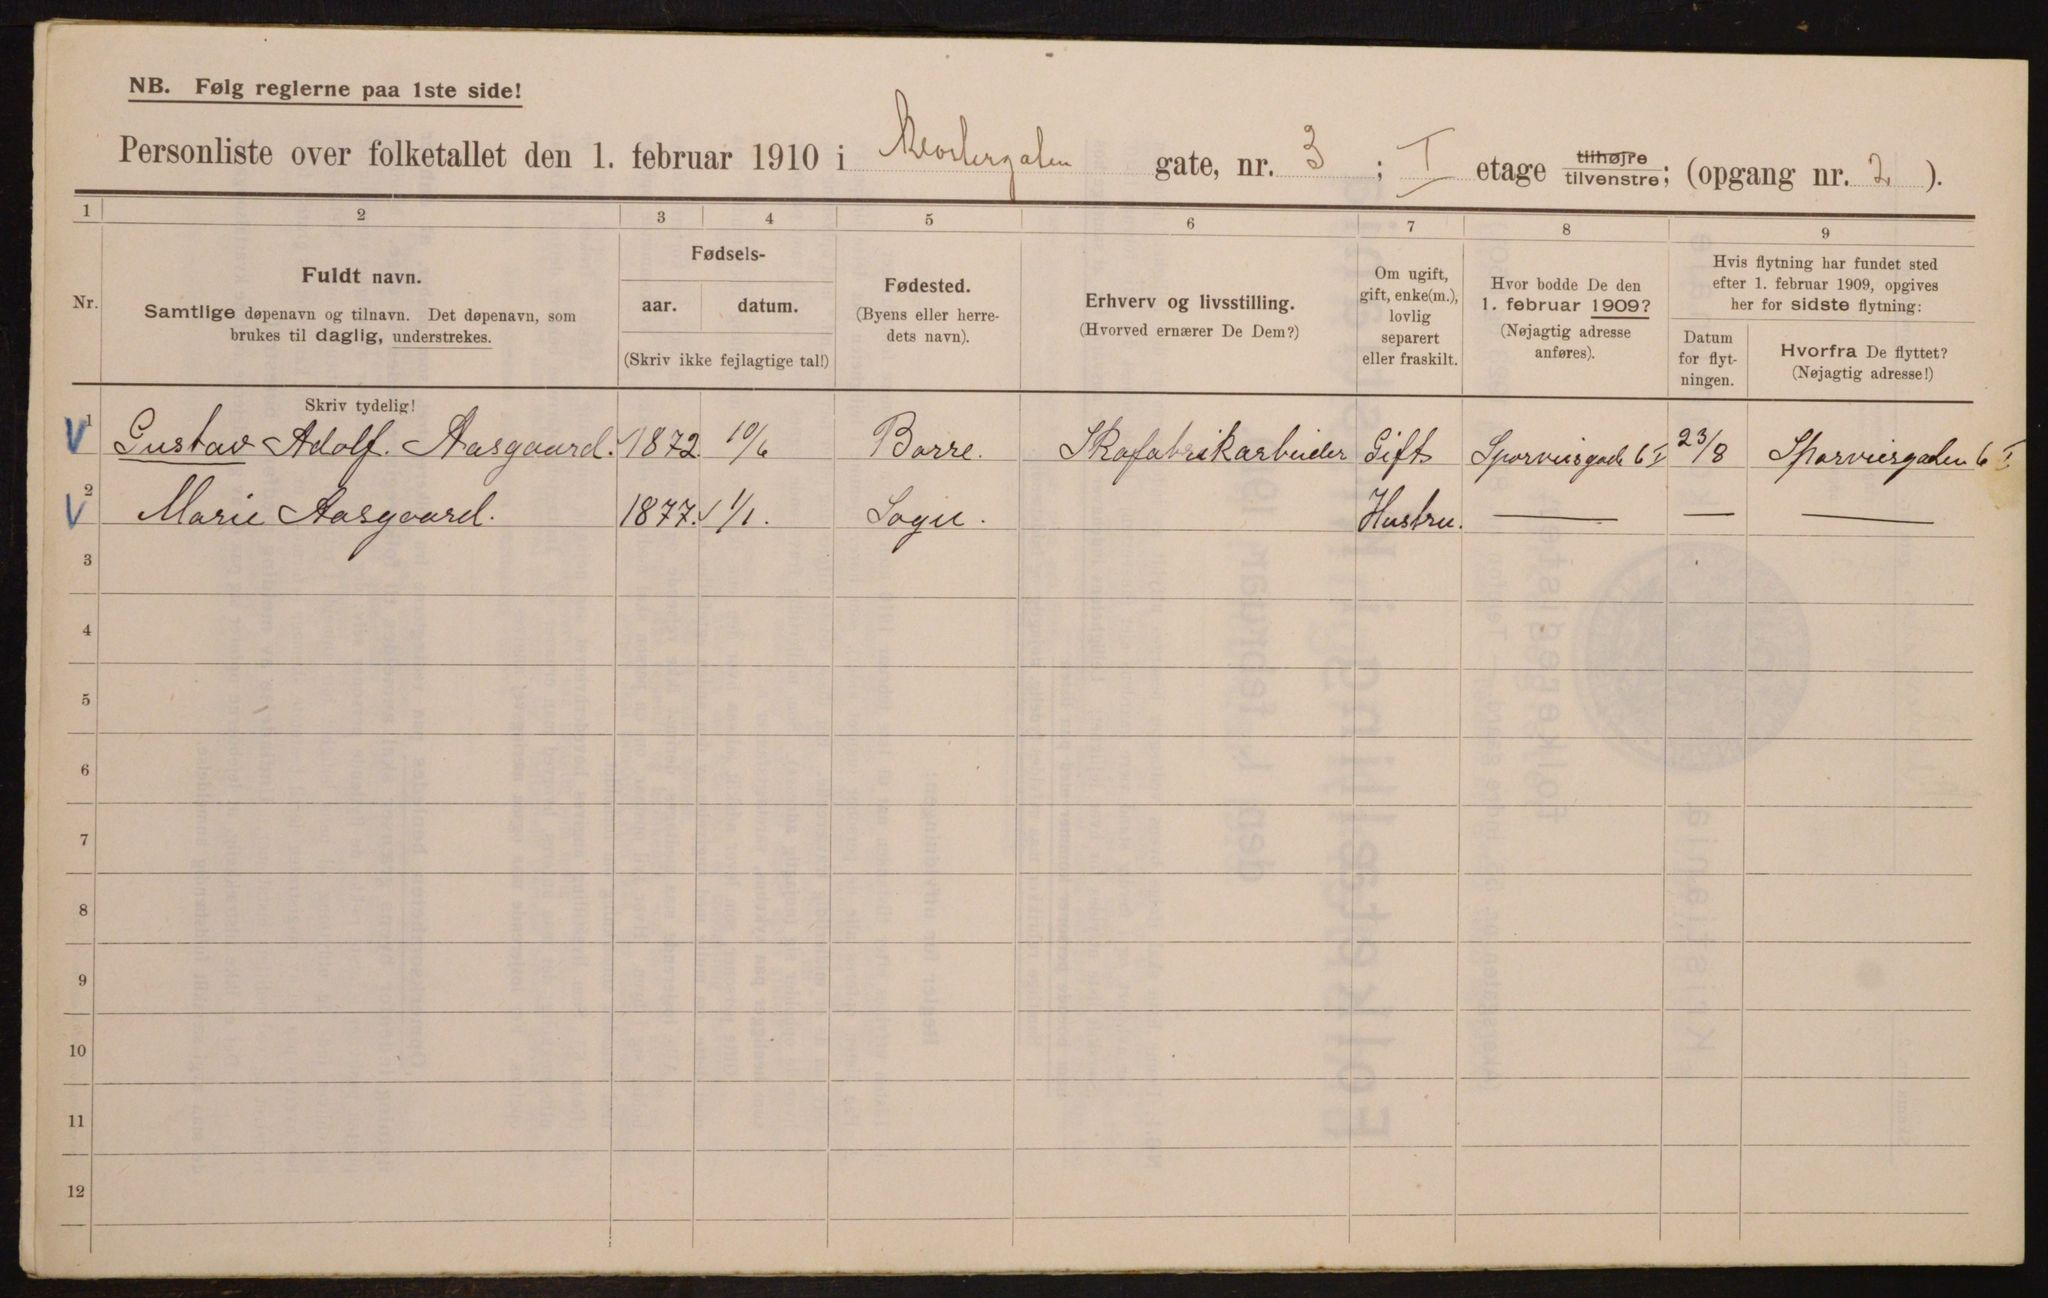 NB. Følg reglerne paa 1ste side!
Personliste over folketallet den 1. februar 1910 i Klostergaten gate, nr. 3 ; I etage tilhøjre tilvenstre; (opgang nr. 2 ).
1 2 3 4 5 6 7 8 9
Nr.
Fuldt navn.
Samtlige døpenavn og tilnavn. Det døpenavn, som
brukes til daglig, understrekes.
Fødsels-
aar. datum.
(Skriv ikke fejlagtige tal!)
Fødested.
(Byens eller herre-
dets navn).
Erhverv og livsstilling.
(Hvorved ernærer De Dem?)
Om ugift,
gift, enke(m.),
lovlig
separert
eller fraskilt.
Hvor bodde De den
1. februar 1909?
(Nøjagtig adresse
anføres).
Hvis flytning har fundet sted
efter 1. februar 1909, opgives
her for sidste flytning:
Datum
for flyt-
ningen.
Hvorfra De flyttet?
(Nøjagtig adresse!)
Skriv tydelig!
V 1 Gustav Adolf. Aasgaard. 1872 10/6 Borre. Skofabrikarbeider Gift Sporveisgade 6 I 23/8 Sporveisgaden 6 I
V 2 Marie Aasgaard. 1877. 1/1. Sogn. Hustru. — — —
3
4
5
6
7
8
9
10
11
12